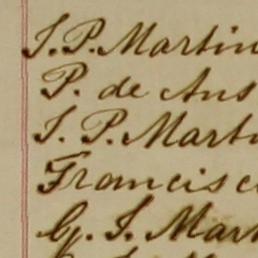 J. P. Martin
P. de Ans
J. P. Mart
Francisc
G. J. Mar